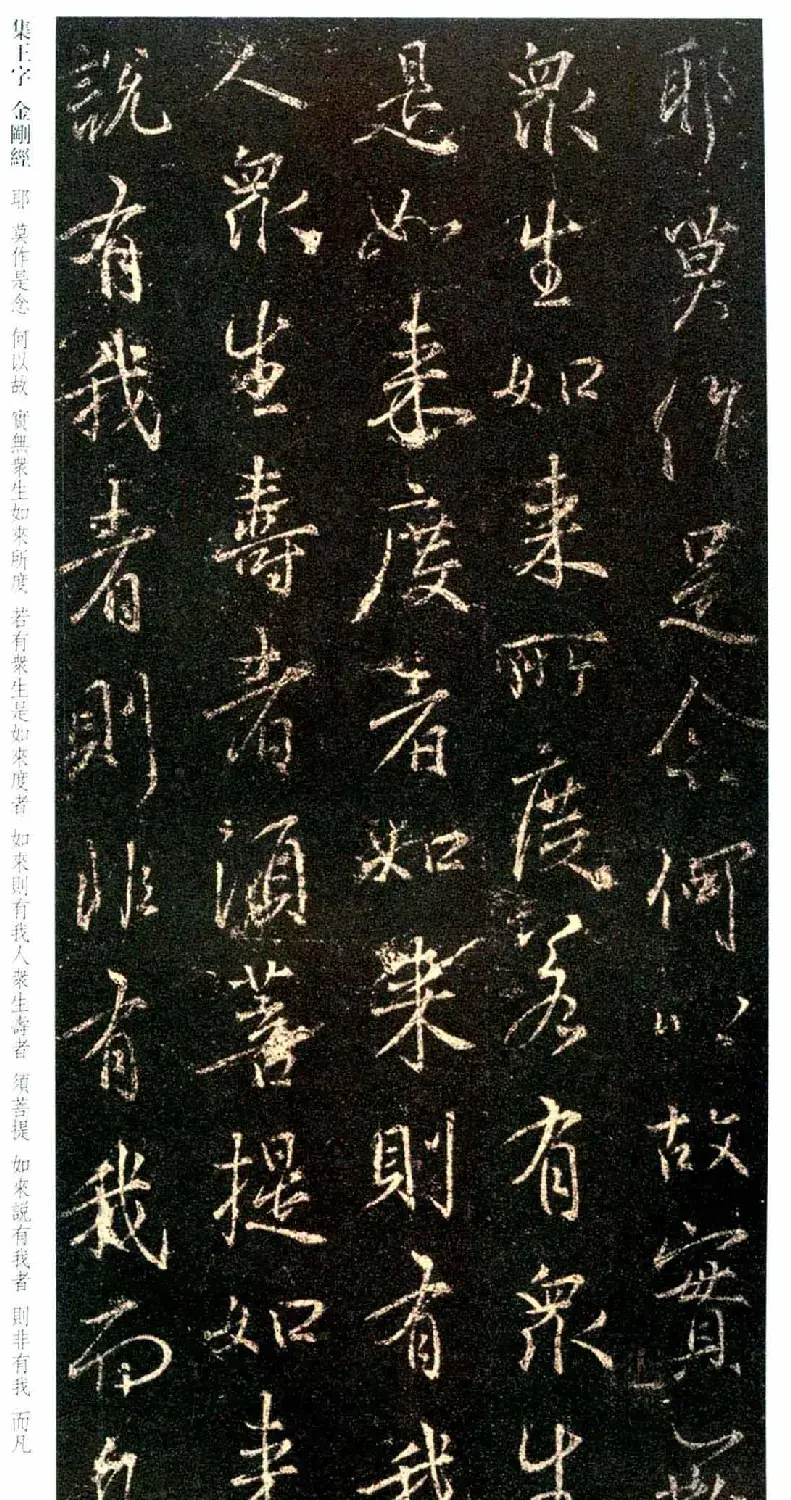 耶莫作是念何以故實無
衆生如來所度若有衆生
是如來度者如來則有我
人衆生壽者須菩提如來
說有我者則非有我而凡
集王字 金剛經 耶 莫作是念 何以故 實無衆生如來所度 若有衆生是如來度者 如來則有我人衆生壽者 須菩提 如來說有我者 則非有我 而凡